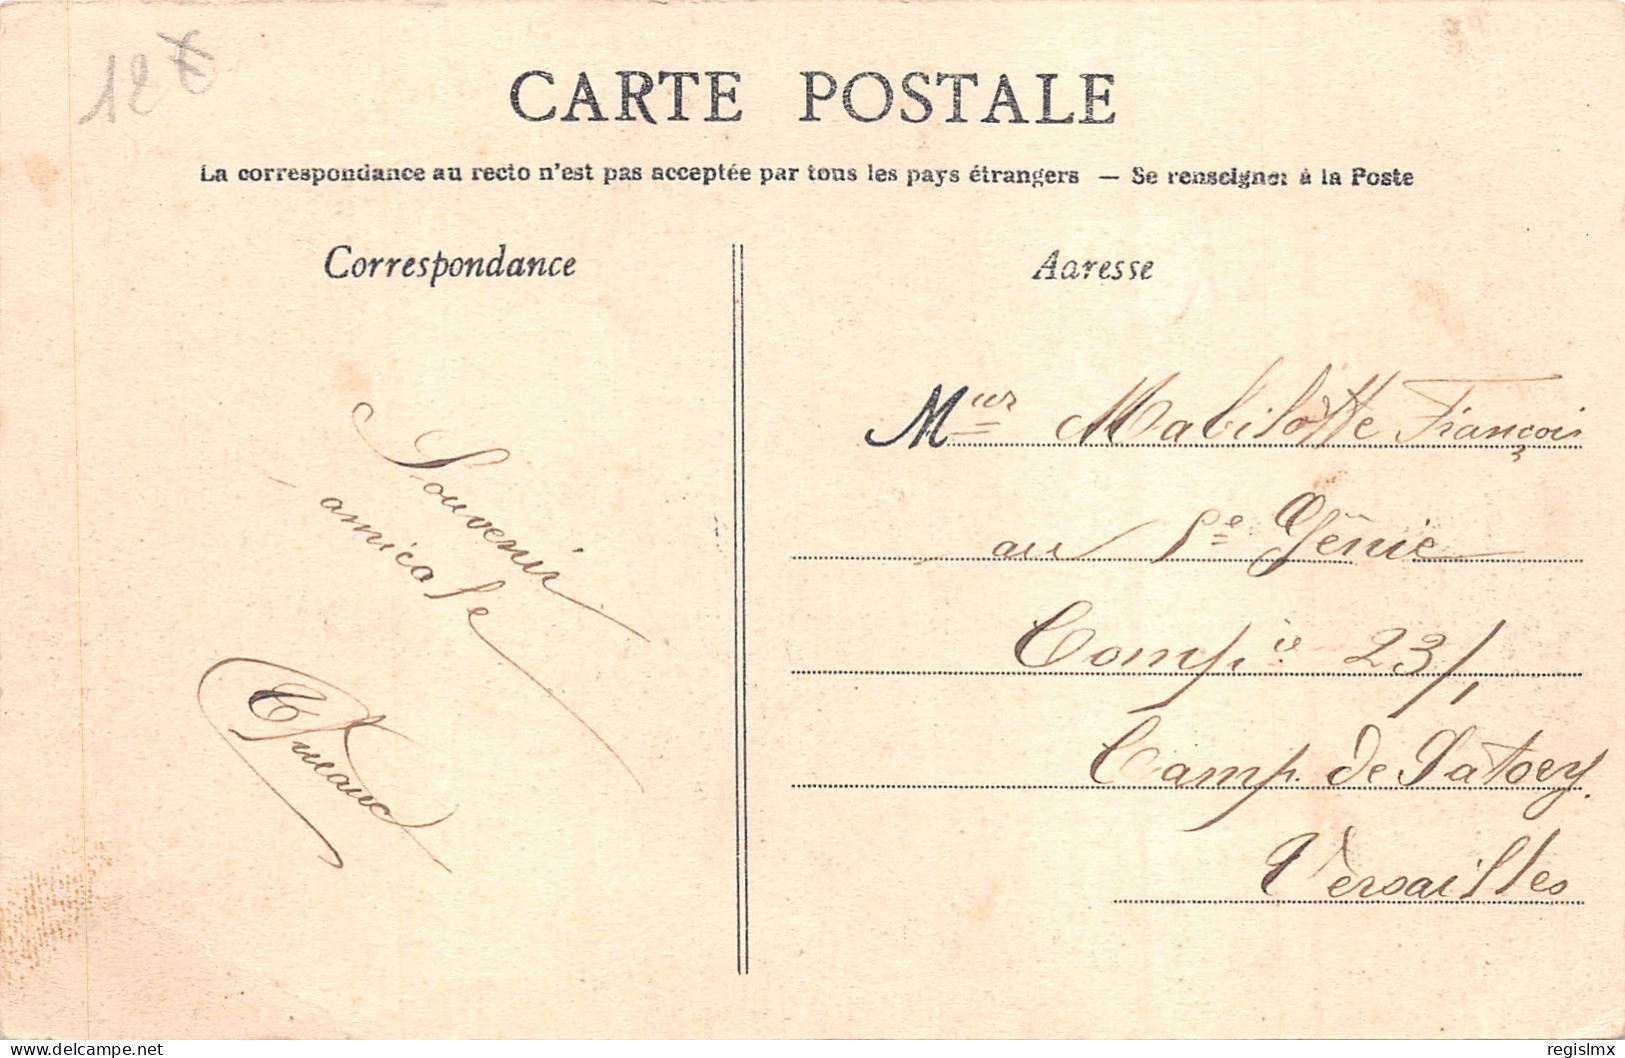 CARTE POSTALE
La correspondance au recto n'est pas acceptée par tous les pays étrangers — Se renseigner à la Poste
Correspondance
Souvenir
amicale
Adresse
Mieur Mabilotte François
au 5e Génie
Compie 23/1
Camp de Satory
Versailles
regislmx